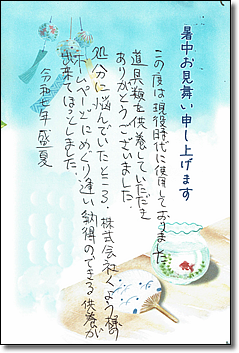 暑中お見舞い申し上げます
この度は現役時代に使用しておりました
道具類を供養していただき
ありがとうございました。
処分に悩んでいたところ、株式会社くよう様の
ホームページにめぐり逢い納得のできる供養が
出来てほっとしました。
令和七年 盛夏